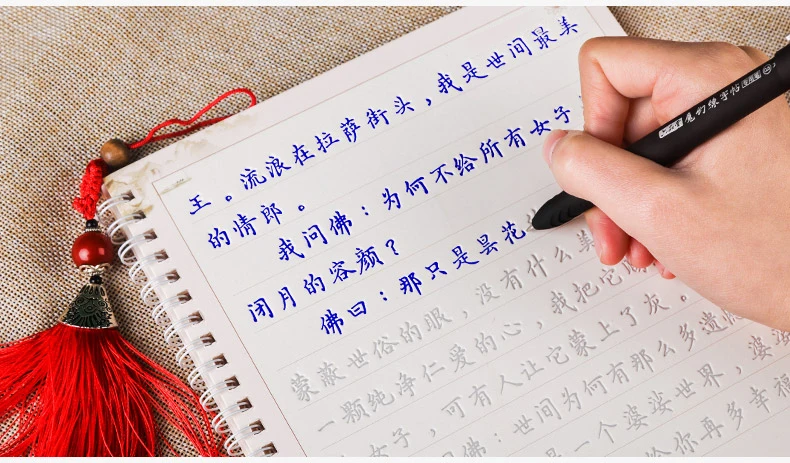 王。流浪在拉萨街头，我是世间最美
的情郎。
我问佛：为何不给所有女子
闭月的容颜？
佛曰：那只是昙花
蒙蔽世俗的眼，没有什么美
一颗纯净仁爱的心，我把它赐
女子，可有人让它蒙上了灰。
佛：世间为何有那么多遗
是一个婆娑世界，婆
给你再多幸福
魔幻练字帖